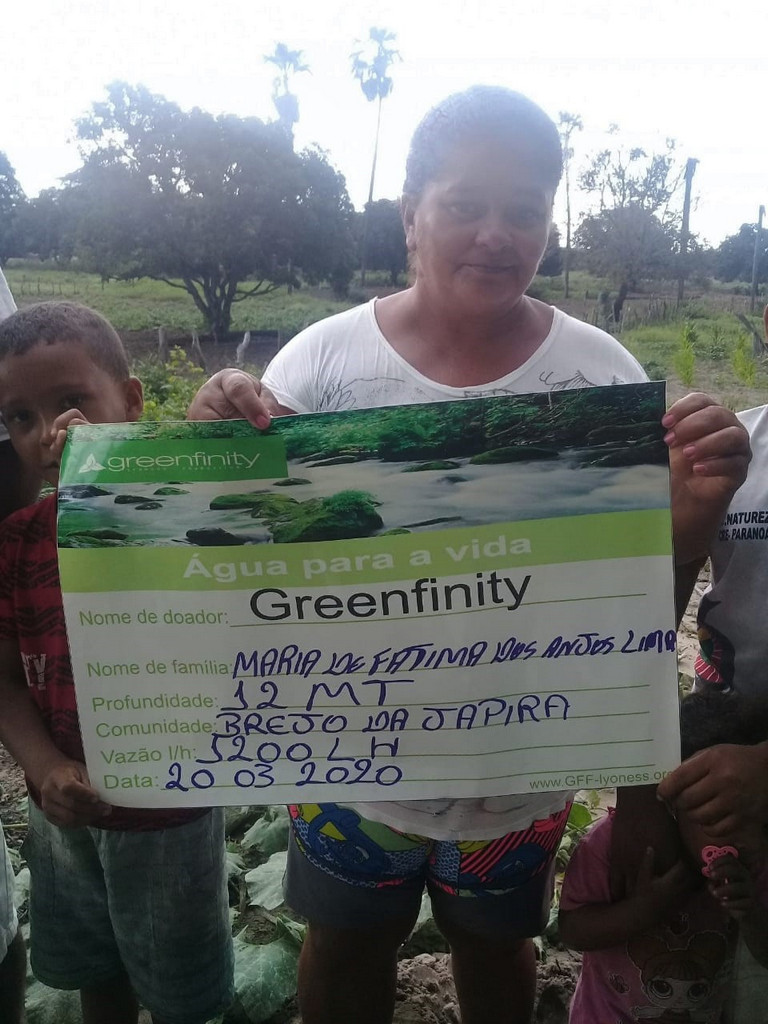 greenfinity
Água para a vida
Nome de doador: Greenfinity
Nome de familia: MARIA DE FATIMA DOS ANJOS LIMA
Profundidade: 12 MT
Comunidade: BREJO DA JAPIRA
Vazão l/h: 5200 LH
Data: 20 03 2020
www.GFF-lyoness.org
NATUREZ
PARANOA